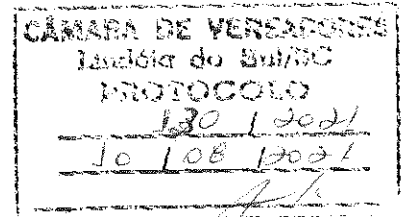 CÂMARA DE VEREADORES
Lindóia do Sul/SC
PROTOCOLO
130 / 2021
10 / 08 / 2021